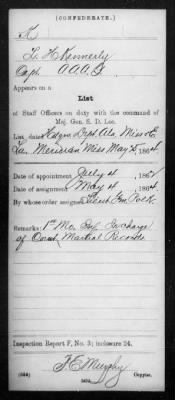 (CONFEDERATE.)
K
L. H. Kennerly
Capt. A.A.A.G.
Appears on a
List
of Staff Officers on duty with the command of
Maj. Gen. S. D. Lee.
List dated Hdqrs Dept. Ala. Miss & E
La. Meridian Miss May 5, 1864
Date of appointment July 4, 186
Date of assignment May 4, 1864
By whose order assigned Lieut Gen Polk
Remarks: 1st Mo. Inf. In charge
of Court Martial Records
Inspection Report F, No. 3; inclosure 24.
F. E. Murphy
Copyist.